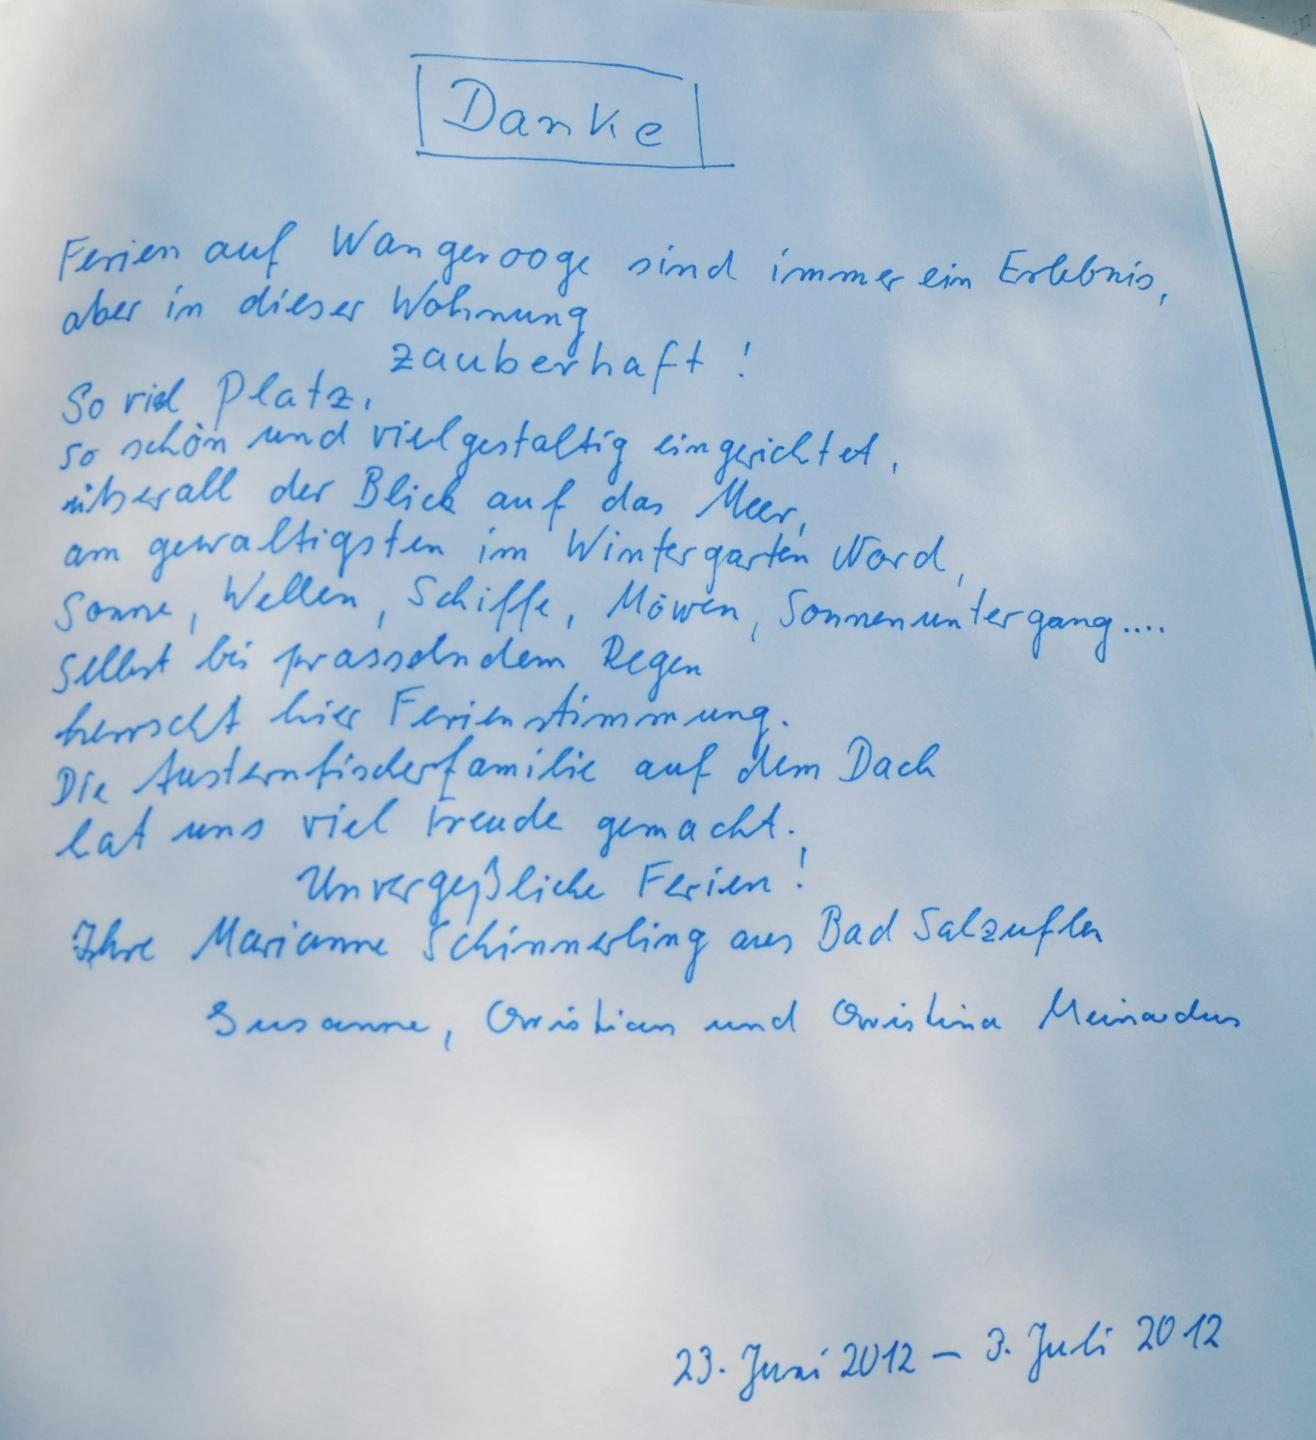 Danke
Ferien auf Wangerooge sind immer ein Erlebnis,
aber in dieser Wohnung
zauberhaft!
So viel Platz,
so schön und vielgestaltig eingerichtet,
überall der Blick auf das Meer,
am gewaltigsten im Wintergarten Nord,
Sonne, Wellen, Schiffe, Möwen, Sonnenuntergang....
Selbst bei prasselndem Regen
herrscht hier Ferienstimmung.
Die Austernfischerfamilie auf dem Dach
hat uns viel Freude gemacht.
Unvergeßliche Ferien!
Ihre Marianne Schimmerling aus Bad Salzuflen
Susanne, Christian und Christina Meinardus
23. Juni 2012 – 3. Juli 2012